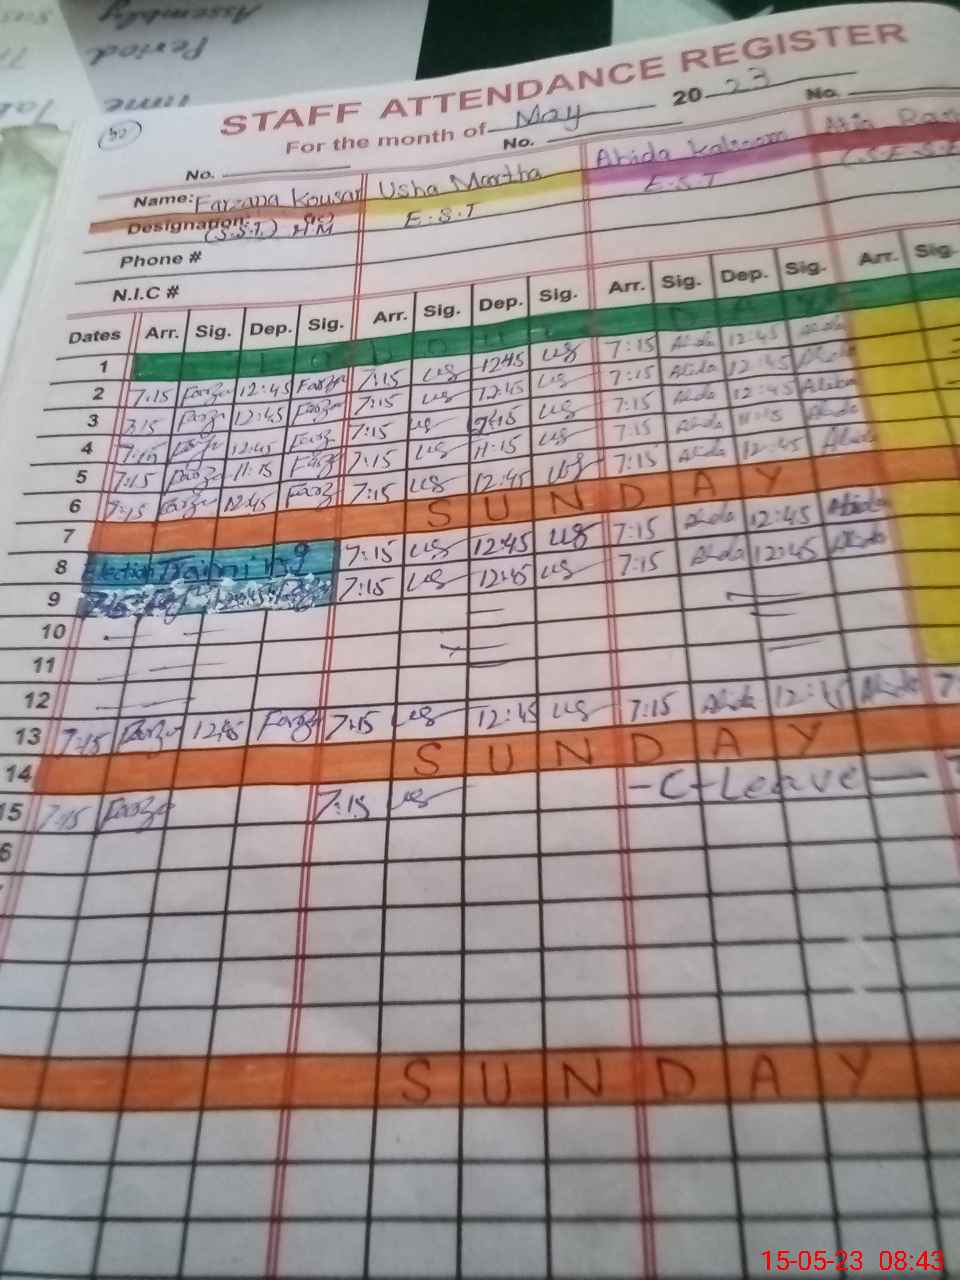 Assembly
Period
Time
STAFF ATTENDANCE REGISTER
For the month of May 2023
No. No. No.
Name: Farzana Kousar Usha Martha Abida Kalsoom Atia
Designation: (S.S.T) H.M E.S.T E.S.T
Phone #
N.I.C #
Dates Arr. Sig. Dep. Sig. Arr. Sig. Dep. Sig. Arr. Sig. Dep. Sig. Arr. Sig.
1
2 7:15 Farza 12:45 Farza 7:15 us 12:45 us 7:15 Abida 12:45 Abida
3 7:15 Farza 12:45 Farza 7:15 us 12:45 us 7:15 Abida 12:45 Abida
4 7:15 Farza 12:45 Farza 7:15 us us 7:15 Abida 12:45 Abida
5 7:15 Farza 11:15 Farza 7:15 us 11:15 us 7:15 Abida 11:15 Abida
6 7:15 Farza 12:45 Farza 7:15 us 12:45 us 7:15 Abida 12:45 Abida
7 SUNDAY
8 Election Training 7:15 us 12:45 us 7:15 Abida 12:45 Abida
9 7:15 us 12:45 us 7:15 Abida 12:45 Abida
10
11
12
13 7:15 Farza 12:45 Farza 7:15 us 12:45 us 7:15 Abida 12:45 Abida 7:
14 SUNDAY
15 7:15 Farza 7:15 us -C-Leave-
6
SUNDAY
15-05-23 08:43